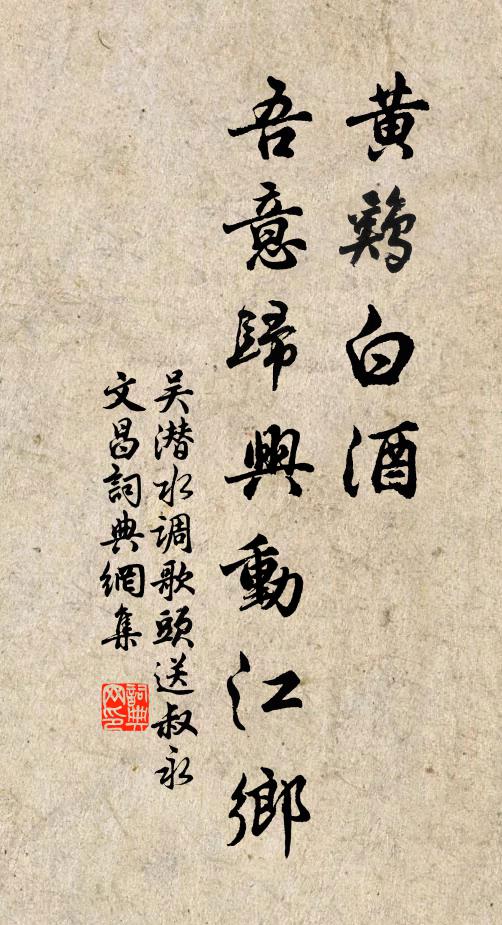 黄鷄白酒
吾意歸興動江鄉
吴潜水调歌頭送叔永
文昌詞典網集
詞典网印